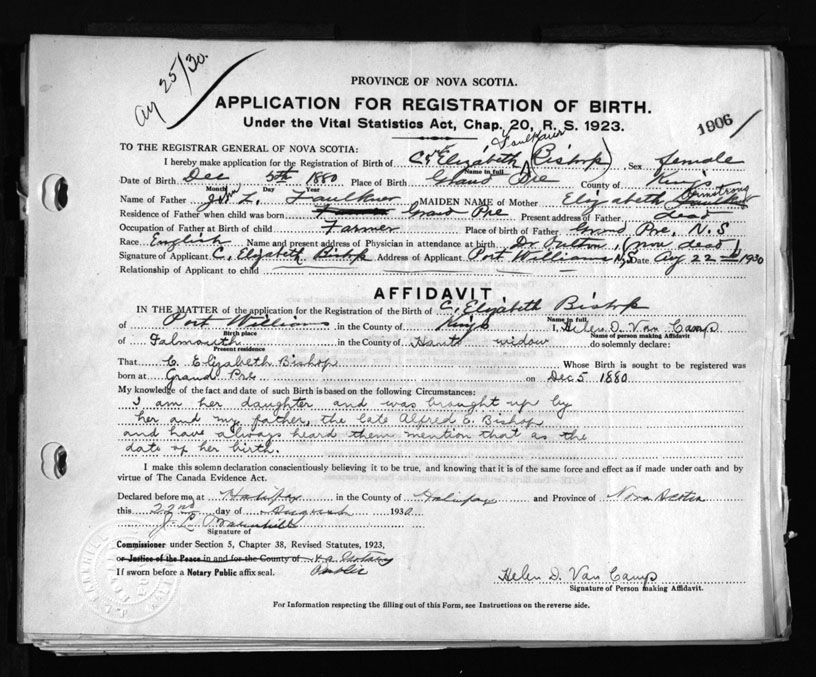 Ag 25/30.
PROVINCE OF NOVA SCOTIA.
APPLICATION FOR REGISTRATION OF BIRTH.
Under the Vital Statistics Act, Chap. 20, R. S. 1923.
1906
TO THE REGISTRAR GENERAL OF NOVA SCOTIA:
Faulkner
I hereby make application for the Registration of Birth of C. Elizabeth (Bishop) Sex female
Name in full
Date of Birth Dec 5th 1880 Place of Birth Grand Pre County of Kings
Month Day Year
Armstrong
Name of Father Faulkner MAIDEN NAME of Mother Elizabeth
Residence of Father when child was born Grand Pre Present address of Father dead
Occupation of Father at Birth of child Farmer Place of birth of Father Grand Pre, N.S
Race English Name and present address of Physician in attendance at birth Dr. Fulton (now dead)
Signature of Applicant C. Elizabeth Bishop Address of Applicant Port Williams N.S. Date Aug 22 1930
Relationship of Applicant to child
AFFIDAVIT
IN THE MATTER of the application for the Registration of the Birth of C. Elizabeth Bishop
Name in full
of Port Williams in the County of Kings I, Helen D. Van Camp
Birth place Name of person making Affidavit
of Falmouth Hants widow do solemnly declare:
Present residence
That C. Elizabeth Bishop Whose Birth is sought to be registered was
born at Grand Pre on Dec 5 1880
My knowledge of the fact and date of such Birth is based on the following Circumstances:
I am her daughter and was brought up by
her and my father, the late Alfred C. Bishop
and have always heard them mention that as the
date of her birth.
I make this solemn declaration conscientiously believing it to be true, and knowing that it is of the same force and effect as if made under oath and by
virtue of The Canada Evidence Act.
Declared before me, at Halifax in the County of Halifax and Province of Nova Scotia
this 22nd day of August 1930
Signature of
Commissioner under Section 5, Chapter 38, Revised Statutes, 1923,
or Justice of the Peace in and for the County of Notary
If sworn before a Notary Public affix seal. Public
Helen D. Van Camp
Signature of Person making Affidavit.
For Information respecting the filling out of this Form, see Instructions on the reverse side.